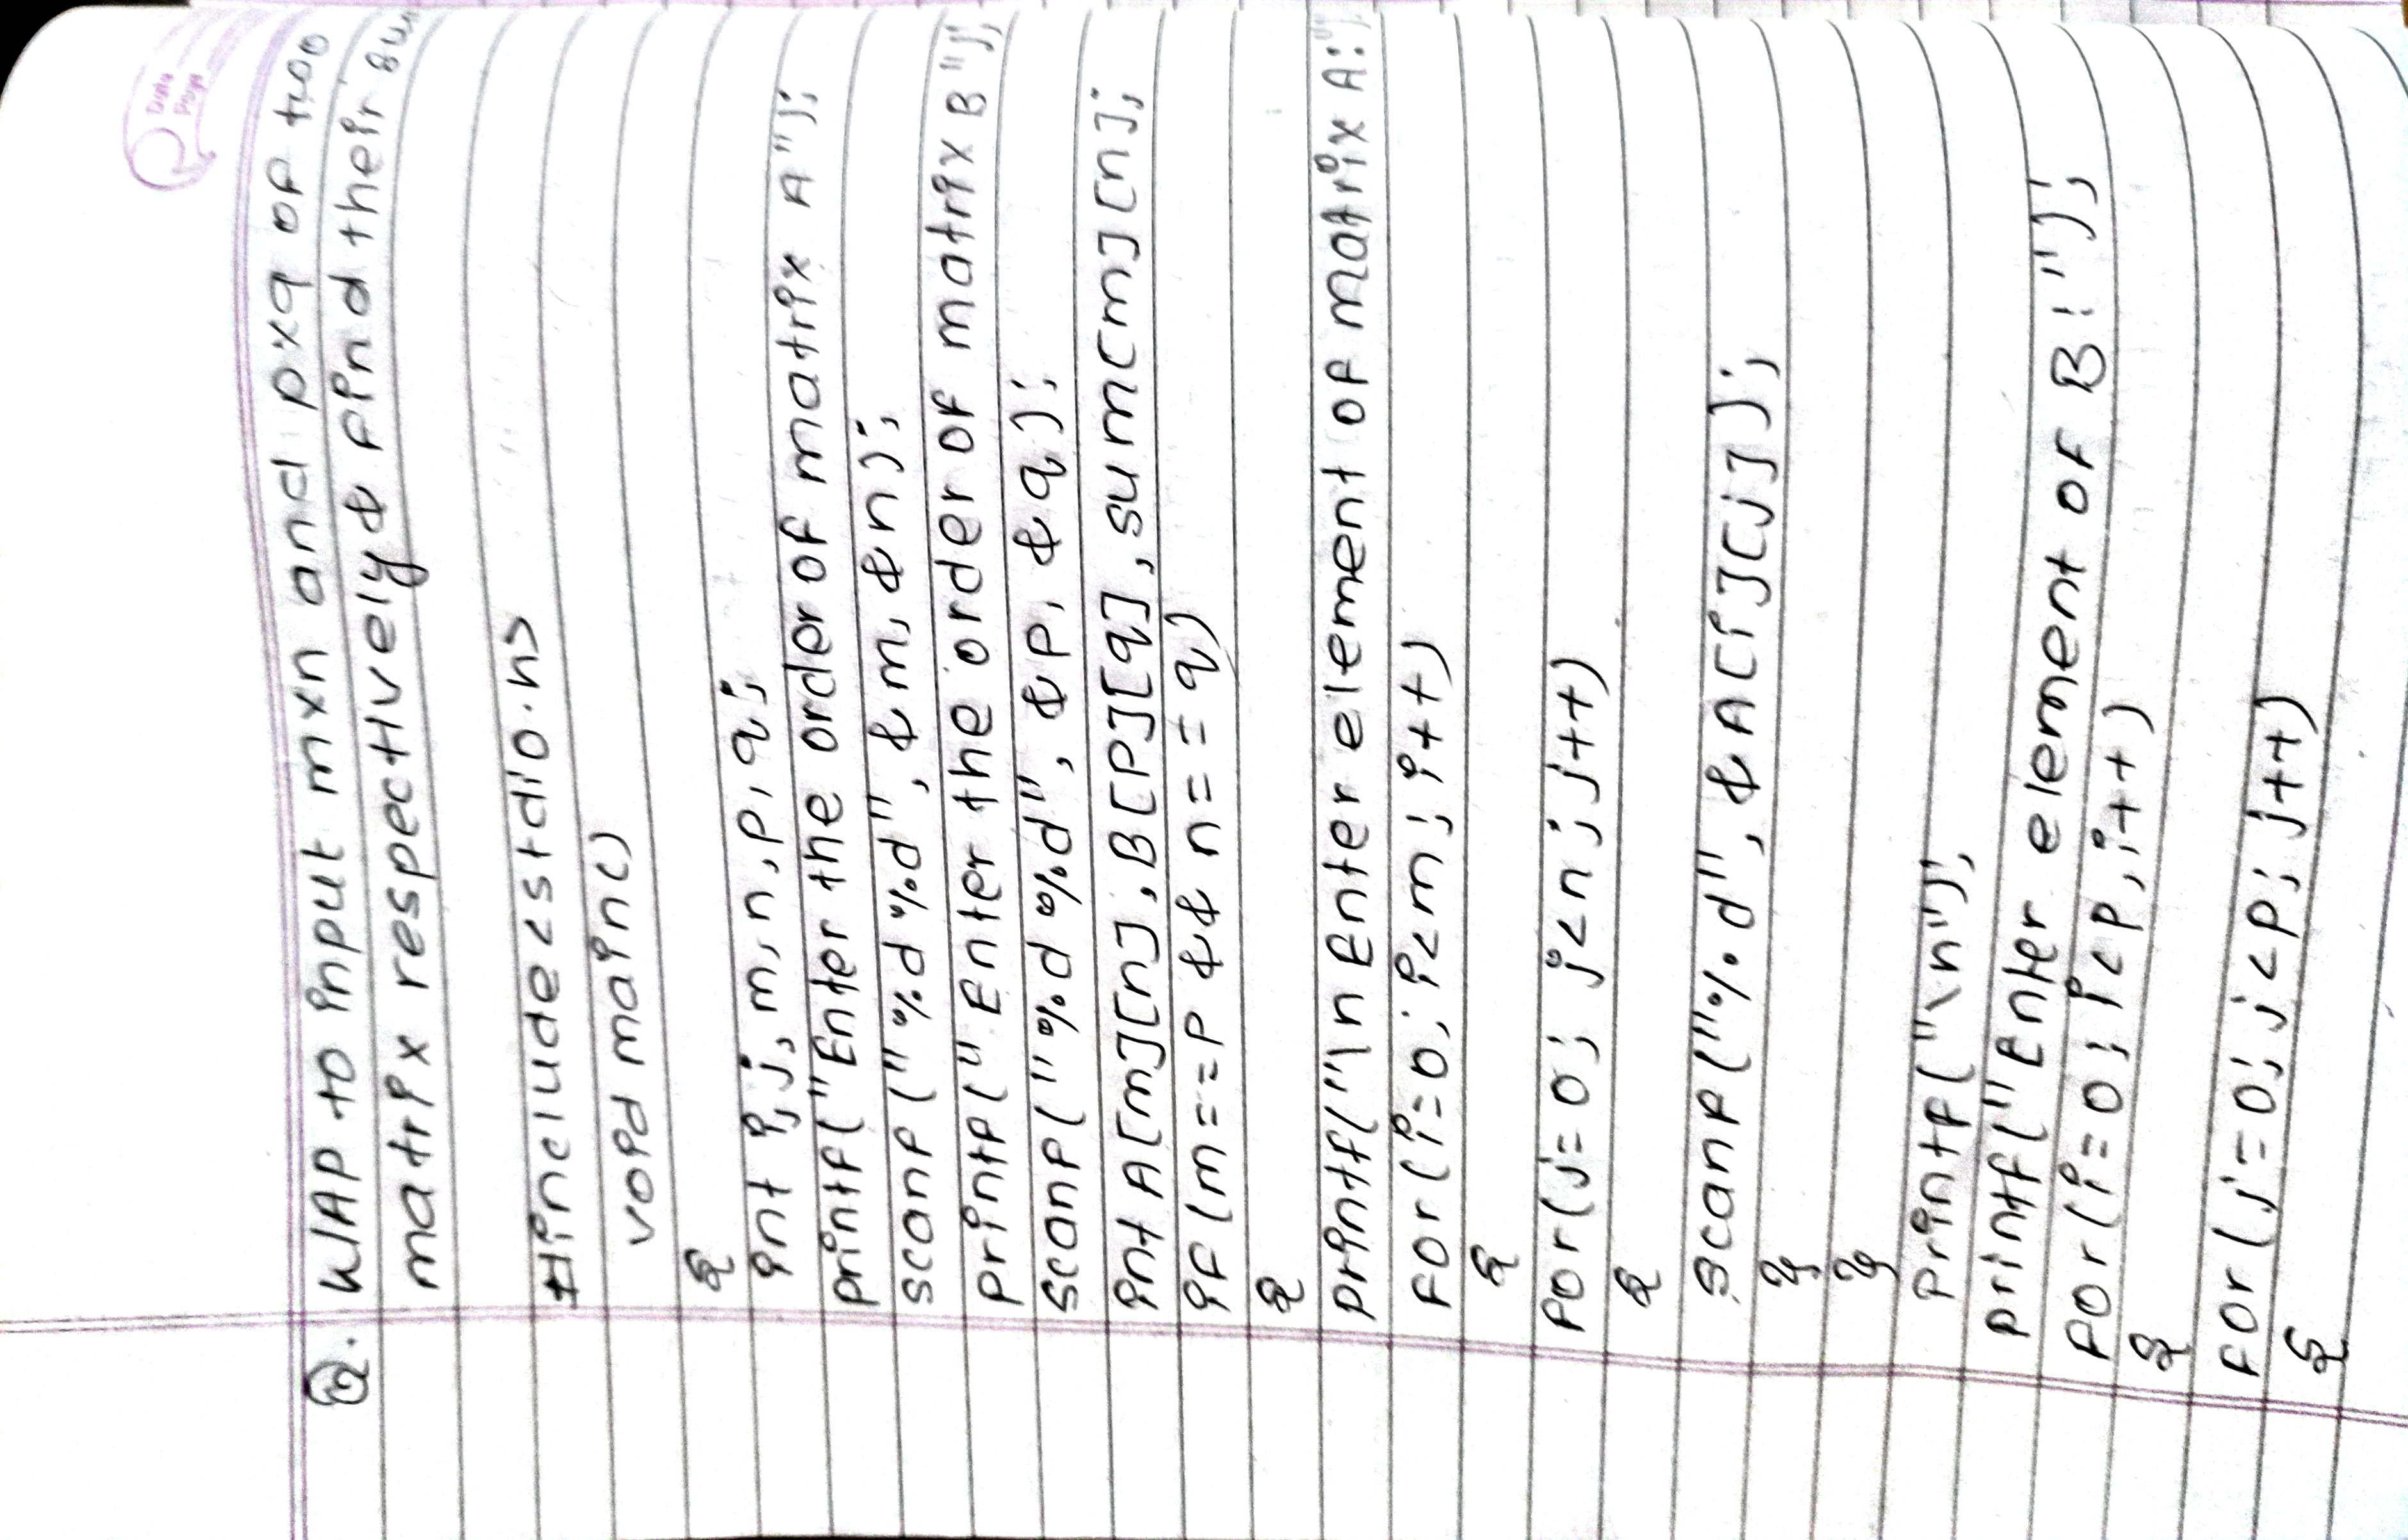 Date
Page
Q. WAP to input mxn and pxq of two
matrix respectively & find their sum
#include<stdio.h>
void main()
{
int i,j,m,n,p,q;
printf("Enter the order of matrix A");
scanf("%d%d",&m,&n);
printf("Enter the order of matrix B");
scanf("%d%d",&p,&q);
int A[m][n],B[p][q],sum[m][n];
if(m==p && n==q)
{
printf("\nEnter element of matrix A:")
for(i=0;i<m;i++)
{
for(j=0;j<n;j++)
{
scanf("%d",&A[i][j]);
}
}
printf("\n");
printf("Enter element of B:");
for(i=0;i<p,i++)
{
for(j=0;j<p;j++)
{